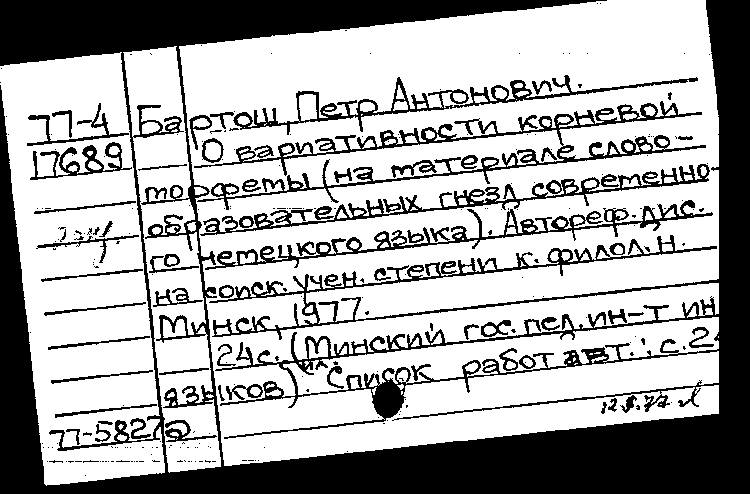 77-4 Бартош, Петр Антонович.
17689 О вариативности корневой
морфемы (на материале слово-
образовательных гнезд современно-
го немецкого языка). Автореф. дис.
на соиск. учен. степени к. филол. н.
Минск, 1977.
24 с. (Минский гос. пед. ин-т ин
языков). Список работ авт.: с. 24
77-5827